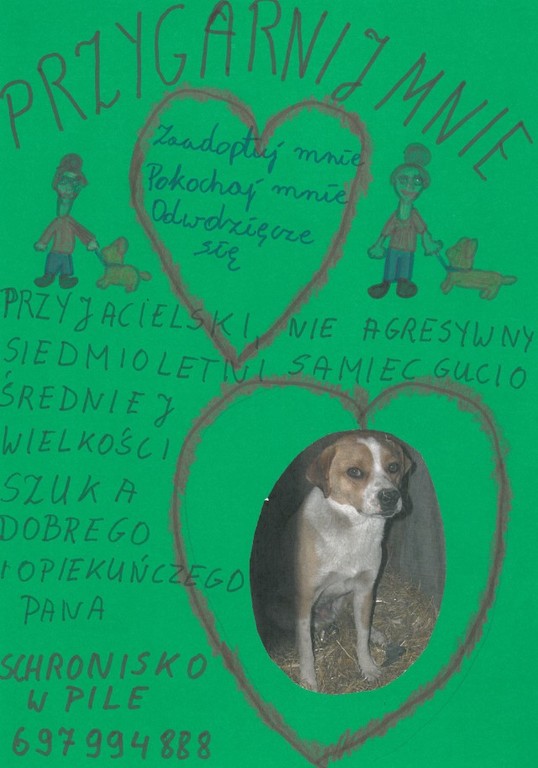 PRZYGARNIJ MNIE
Zaadoptuj mnie
Pokochaj mnie
Odwdzięcze
się
PRZYJACIELSKI, NIE AGRESYWNY
SIEDMIOLETNI SAMIEC GUCIO
ŚREDNIEJ
WIELKOŚCI
SZUKA
DOBREGO
I OPIEKUŃCZEGO
PANA
SCHRONISKO
W PILE
697994888